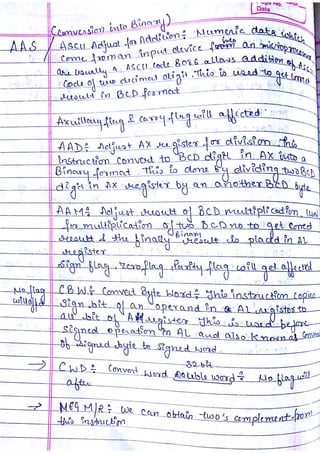 Date
(Conversion into Binary)
AAS ASCII Adjust for Addition: Numeric data which
come from an input device from an microprocessor
are usually a ASCII Code 8086 allows addition of ASCII
Code of two decimal digit. This is used to get correct
result in BCD format
Auxillary flag & carry flag will affected
AAD: Adjust AX register for division This
instruction convert to BCD digit in AX into a
Binary format This is done by dividing two BCD
digit in AX register by an another BCD byte
AAM: Adjust result of BCD multiplication
for multiplication of two BCD no to get correct
result & the finally Binary result is placed in AL
register
Sign flag, zero flag, Parity flag will get affected
No flag will CBW: Convert Byte Word: This instruction copies
Sign bit of an operand in a AL register to
all bit of AH register This is used before
signed operation in AL and also known as
of signed byte to signed word.
32 bit
→ CWD: Convert Word Double word: No flag will
after
→ NEG M/R: We can obtain two's complement from
this instruction